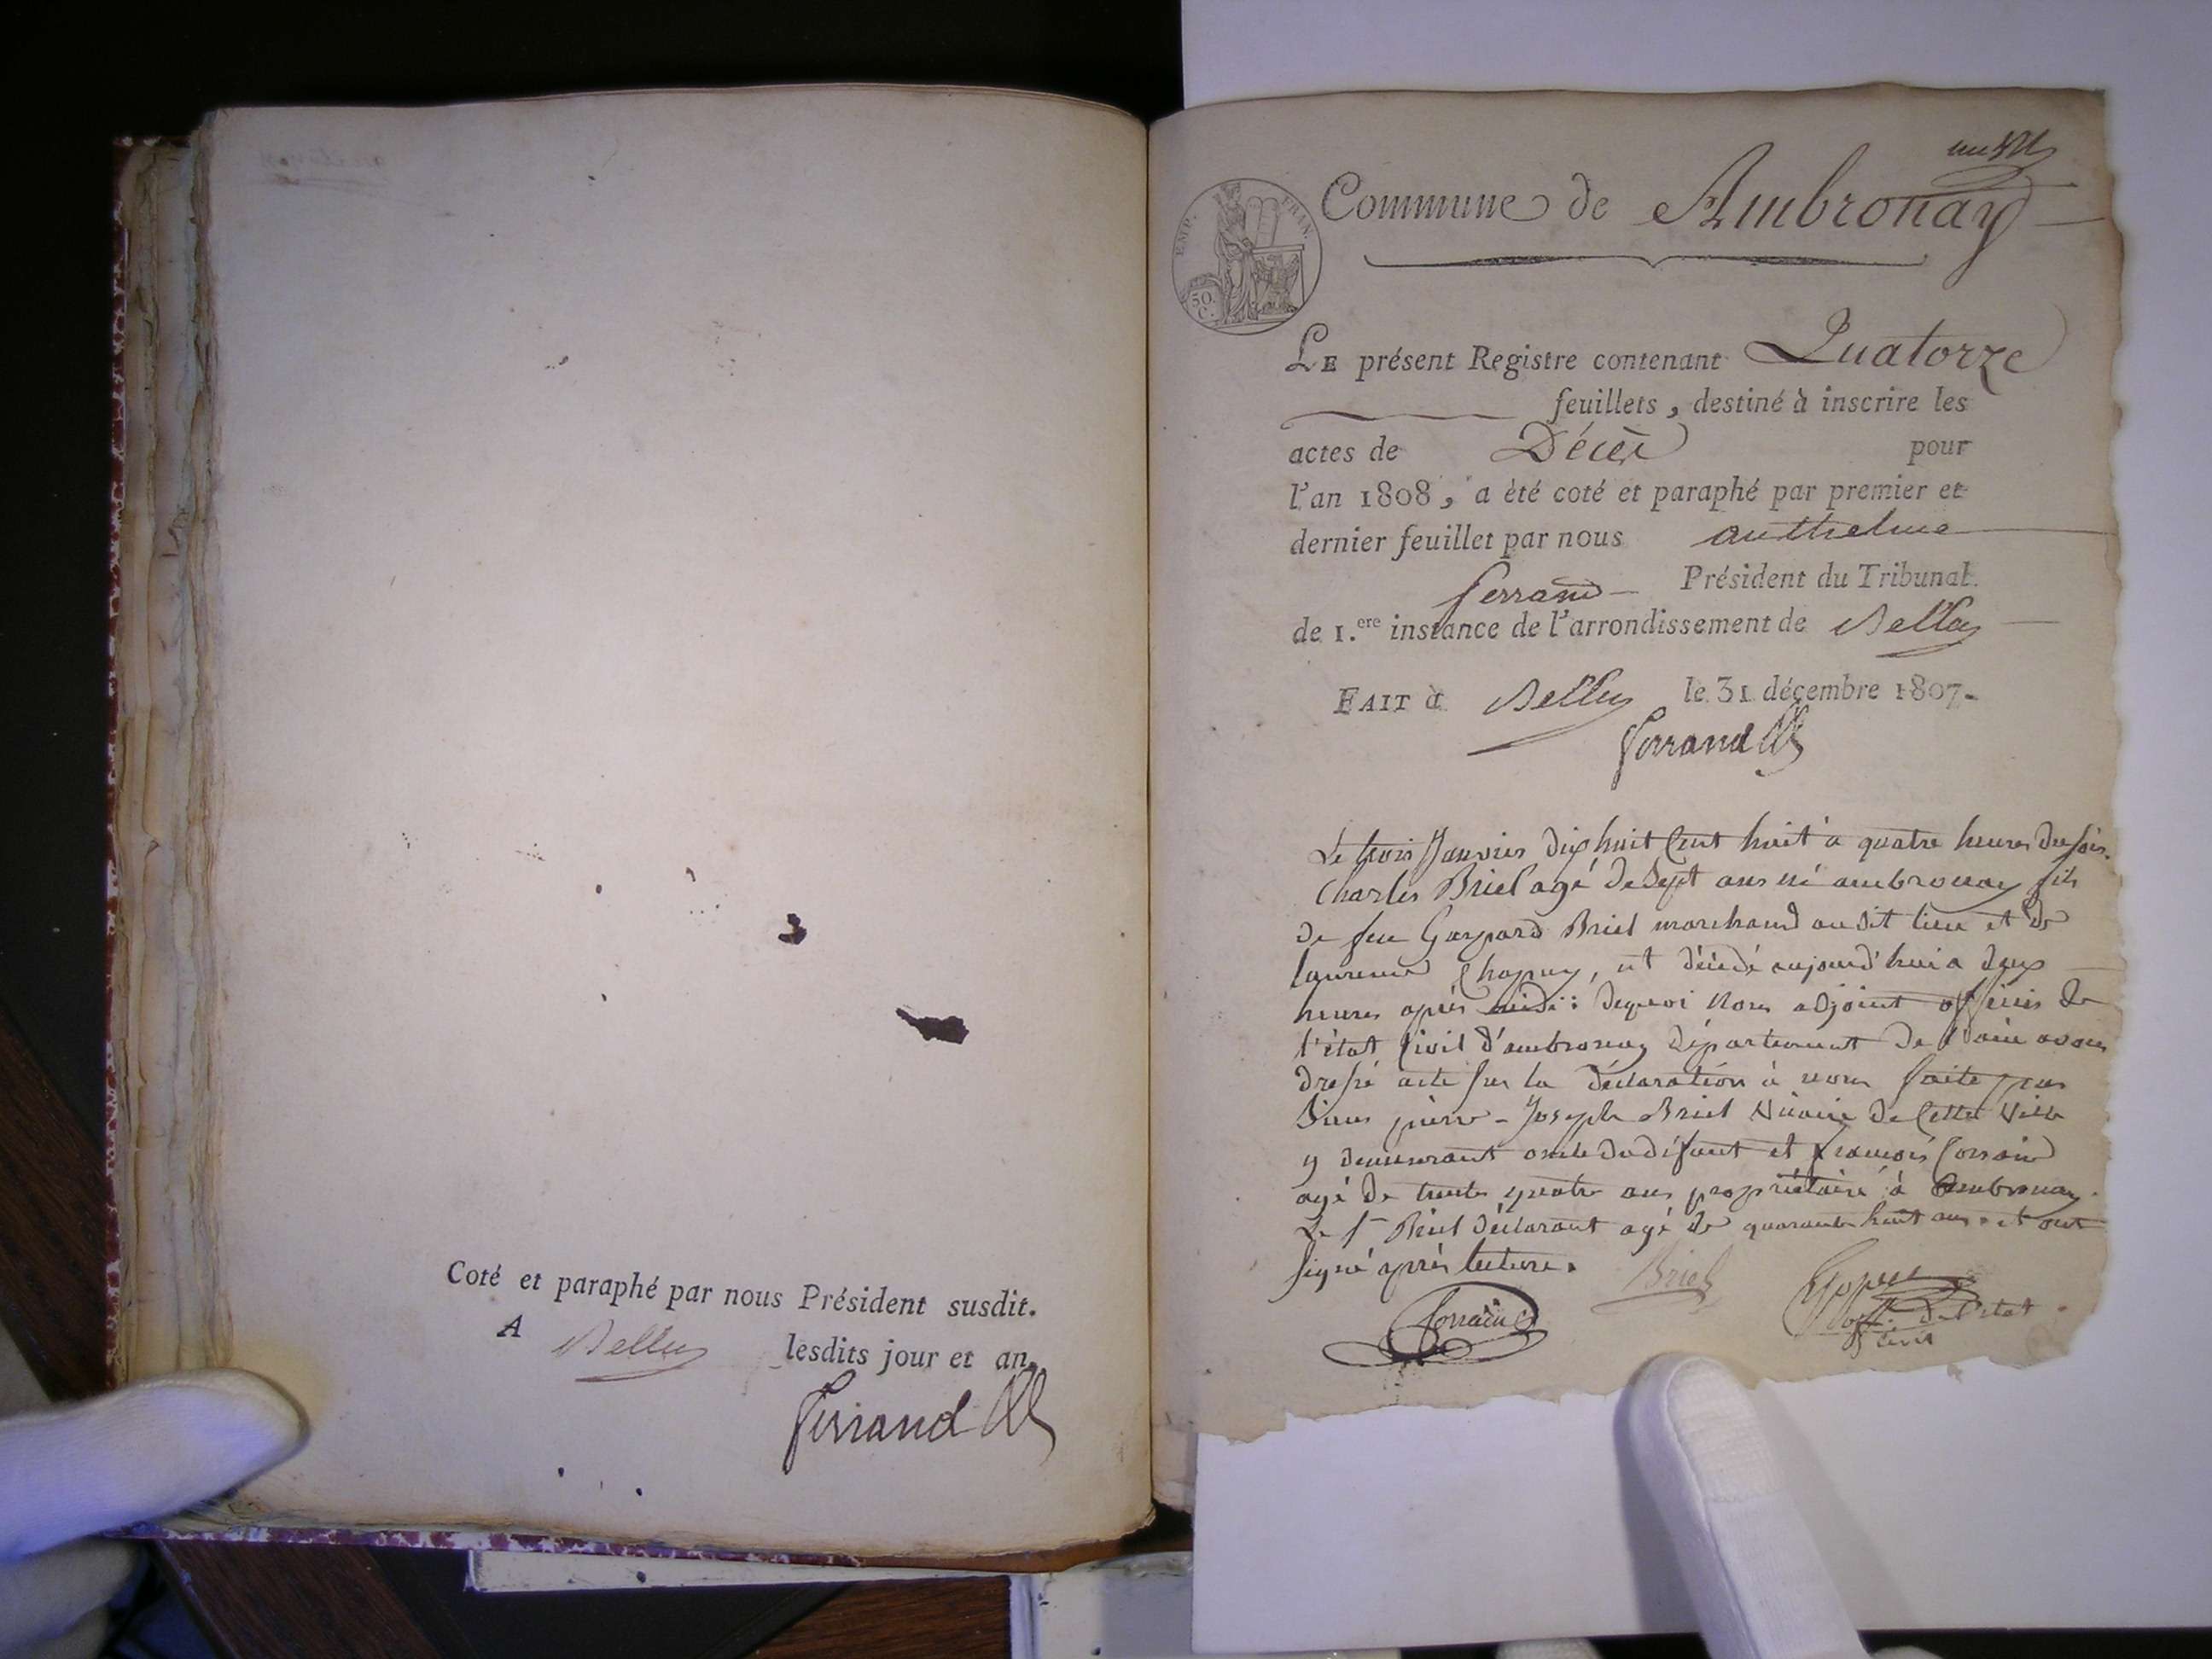 Coté et paraphé par nous Président susdit.
A Belley lesdits jour et an.
Ferrand
Commune de Ambronay
EMP. FRAN.
50.
C.
LE présent Registre contenant Quatorze
feuillets, destiné à inscrire les
actes de Décès pour
l'an 1808, a èté coté et paraphé par premier et
dernier feuillet par nous anthelme
ferrand Président du Tribunal
de 1.ere instance de l'arrondissement de Belley
FAIT à Belley le 31 décembre 1807.
Ferrand
Le trois Janvier dix huit Cent huit à quatre heures du soir.
Charles Briel agé de Sept ans né ambronay fils
de feu Gaspard Briel marchand audit lieu et de
laurence Chapuy, est décédé aujourd'hui a deux
heures après midi: dequoi Nous adjoint officier de
l'état Civil d'ambronay département de l'ain avons
dressé acte sur la déclaration à nous faite par
Sieur pierre-Joseph Briel Vicaire de Cette Ville
y demeurant oncle du défunt et françois
agé de trente quatre ans propriétaire à Ambronay.
Le Sr Briel déclarant agé de quarante huit ans. et ont
signé après lecture.
Briel
off. de l'état
civil